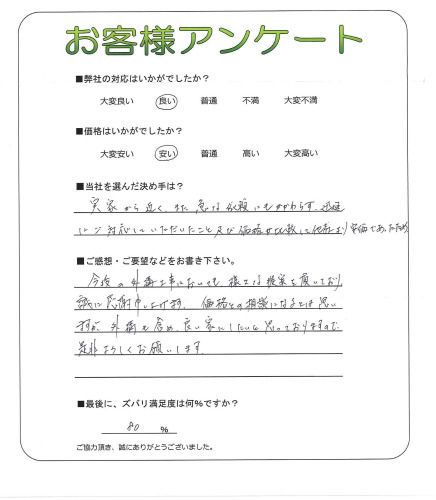 お客様アンケート
■弊社の対応はいかがでしたか？
大変良い 良い 普通 不満 大変不満
■価格はいかがでしたか？
大変安い 安い 普通 高い 大変高い
■当社を選んだ決め手は？
実家から近く、また急な依頼にもかかわらず、迅速
に対応していただいたこと及び価格が比較して他社より安価であったため
■ご感想・ご要望などをお書き下さい。
今後の外構工事においても様々な提案を頂いており
誠に感謝申し上げます。価格との相談になるとは思い
ますが、外構も含め、良い家にしたいと思っておりますので
是非よろしくお願いします。
■最後に、ズバリ満足度は何％ですか？
80 %
ご協力頂き、誠にありがとうございました。